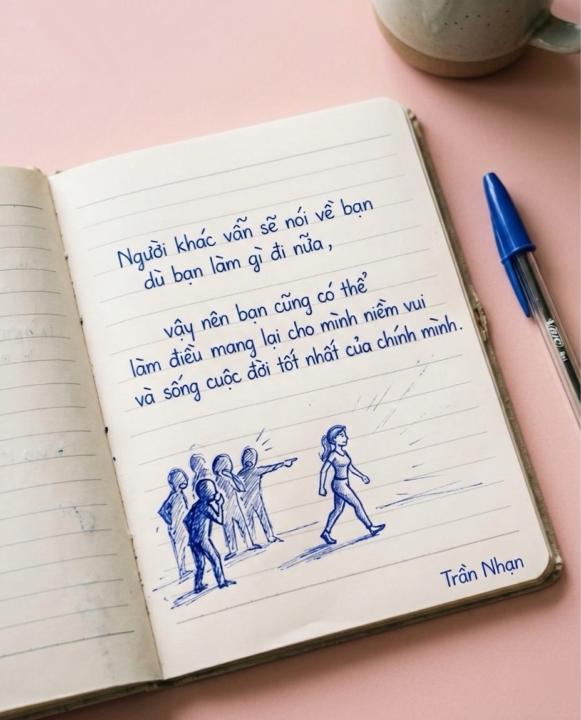 Người khác vẫn sẽ nói về bạn
dù bạn làm gì đi nữa,
vậy nên bạn cũng có thể
làm điều mang lại cho mình niềm vui
và sống cuộc đời tốt nhất của chính mình.
Trần Nhạn